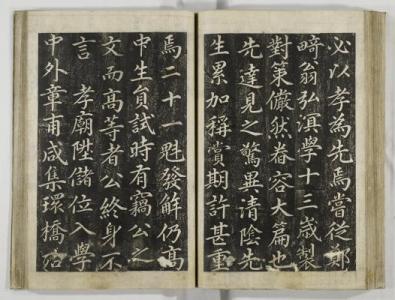 必以孝為先焉嘗從鄭
畸翁弘淇學十三歲製
對策儼然眷容大篇也
先達見之驚異清陰先
生累加稱賞期許甚重
焉二十一魁發解仍高
中生員試時有竊公之
文而高等者公終身不
言 孝廟陞儲位入學
中外章甫咸集環橋